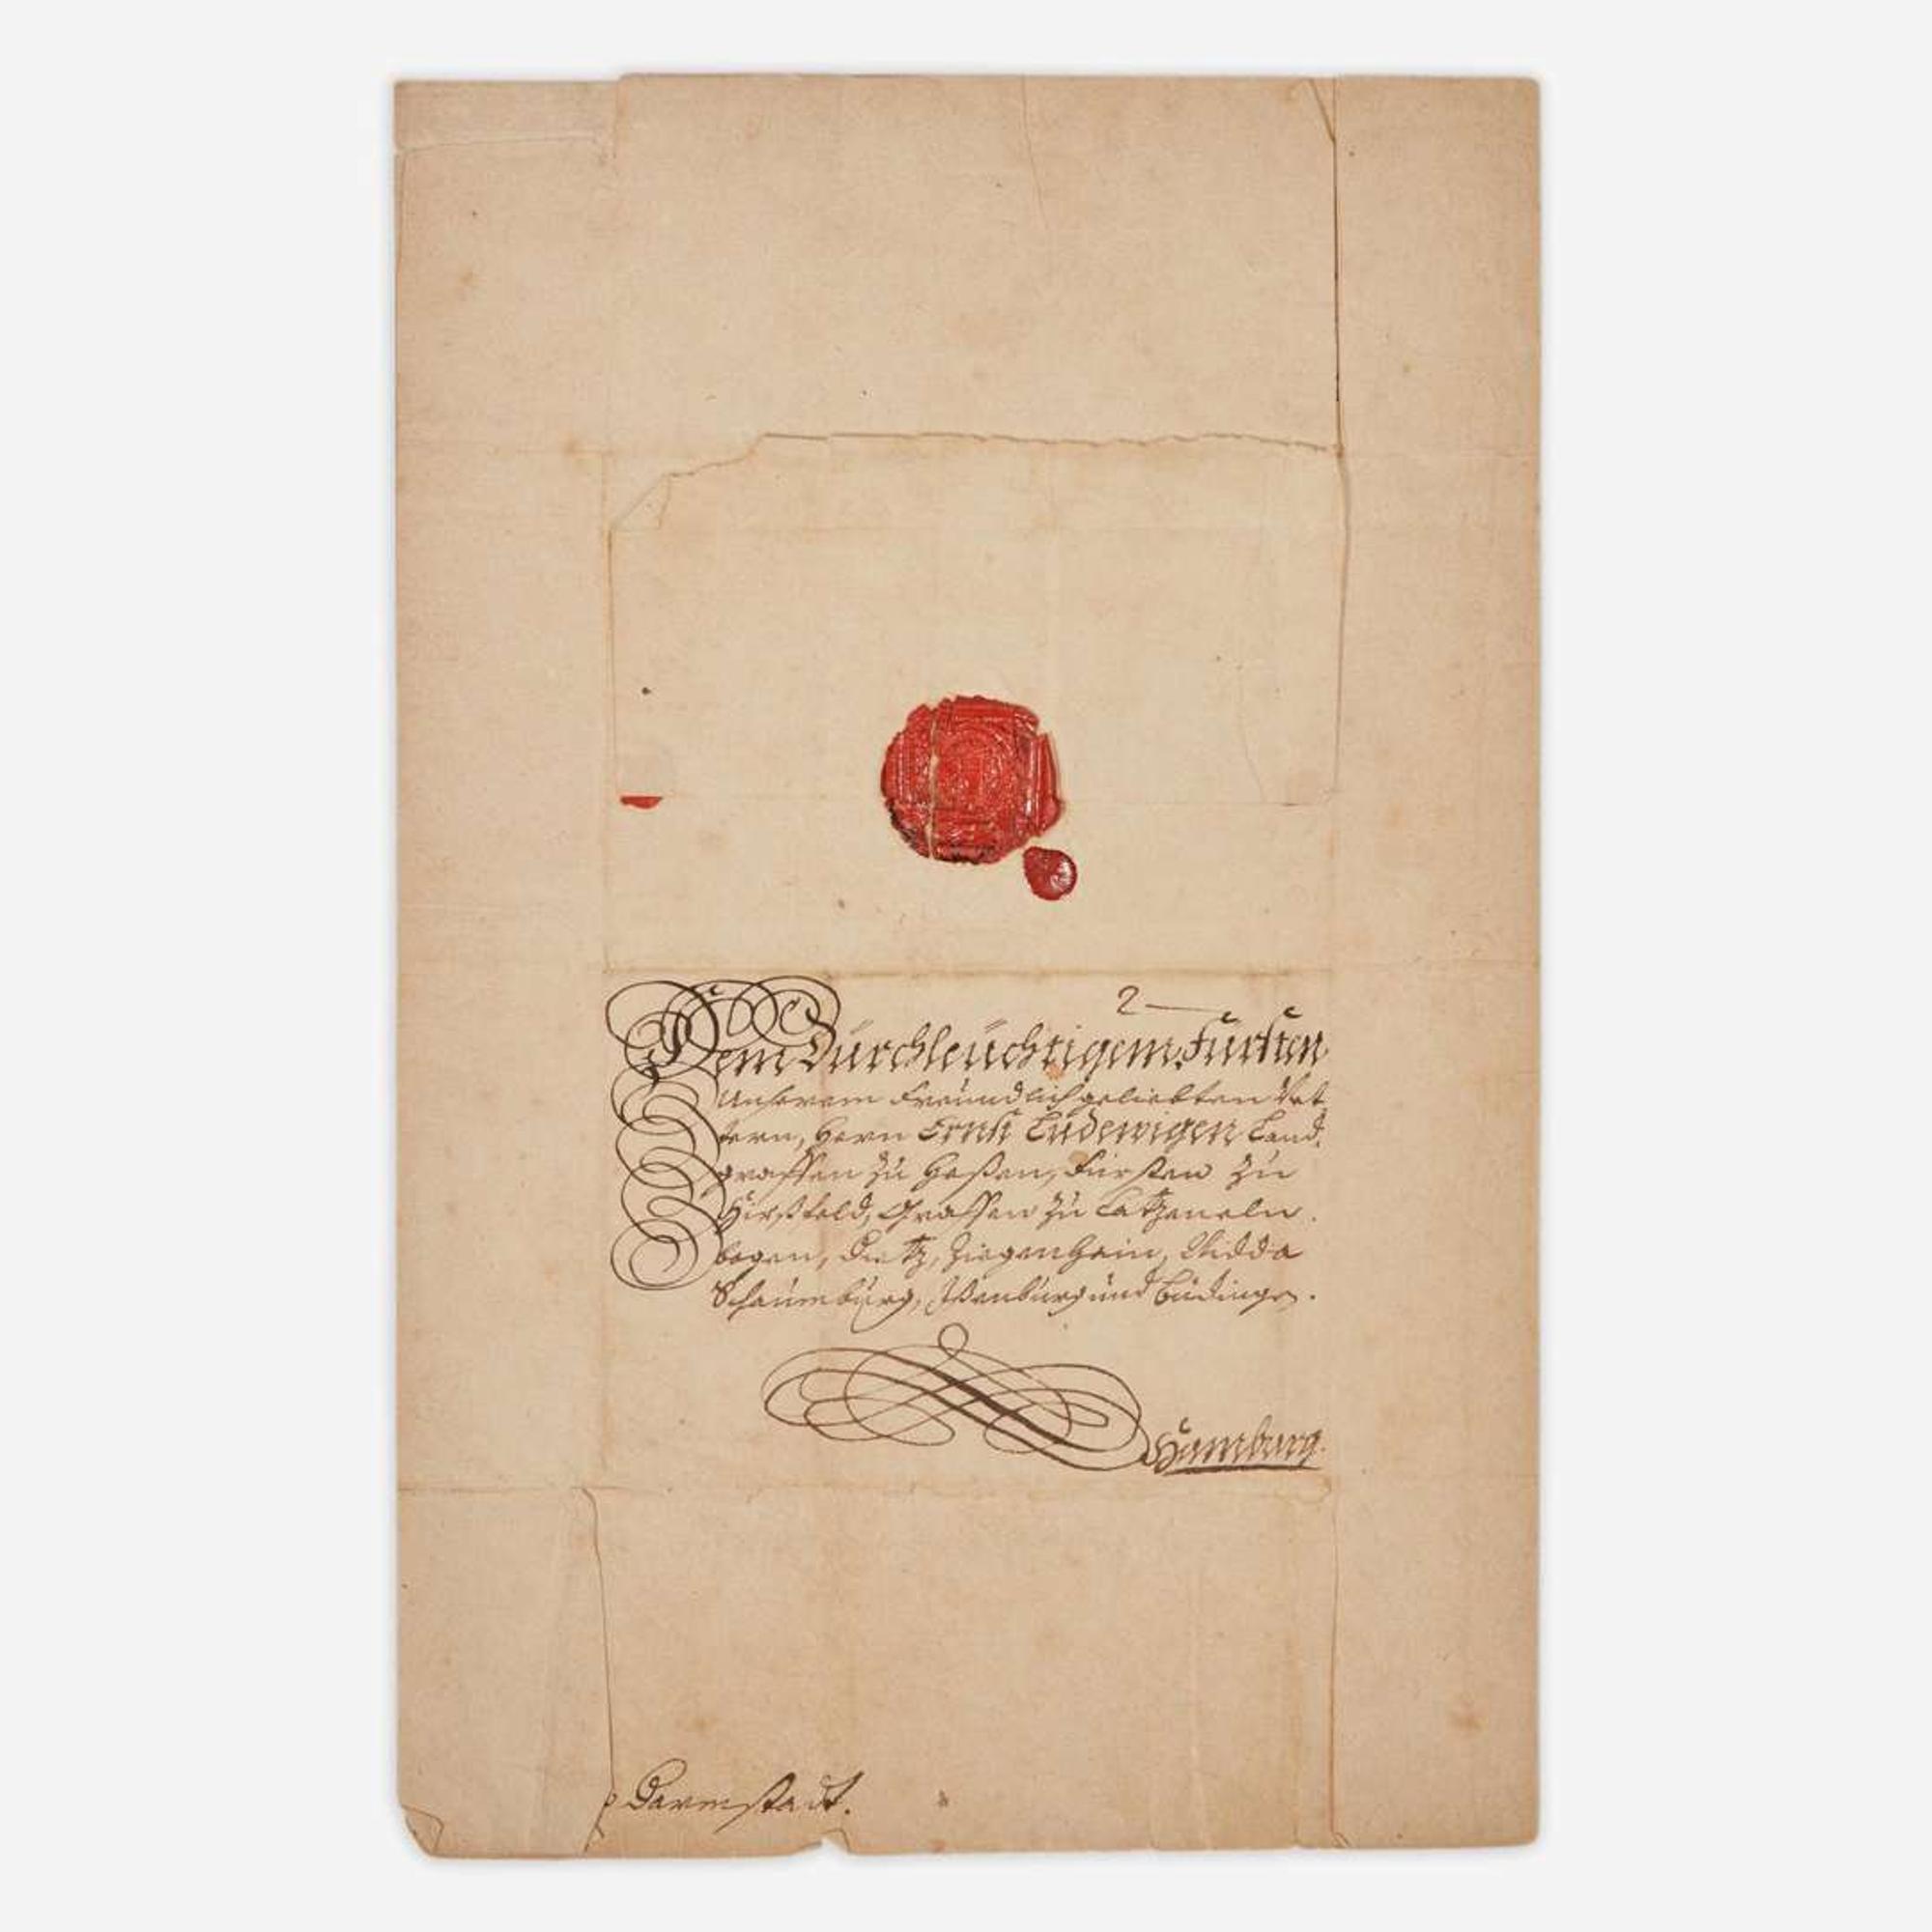 2
Dem Durchleüchtigem Fürsten
Unserem Freündlich geliebten Vet
tern, Hern Ernst Lüdewigen Land,
graffen zü Heßen, Fürsten zü
Hirßfeld, Graffen zü Catzeneln.
bogen, Dietz, Ziegenhain, Nidda
Schaümbürg, Ißenbürg und Büdingen.
Hamburg.
p Darmstadt.